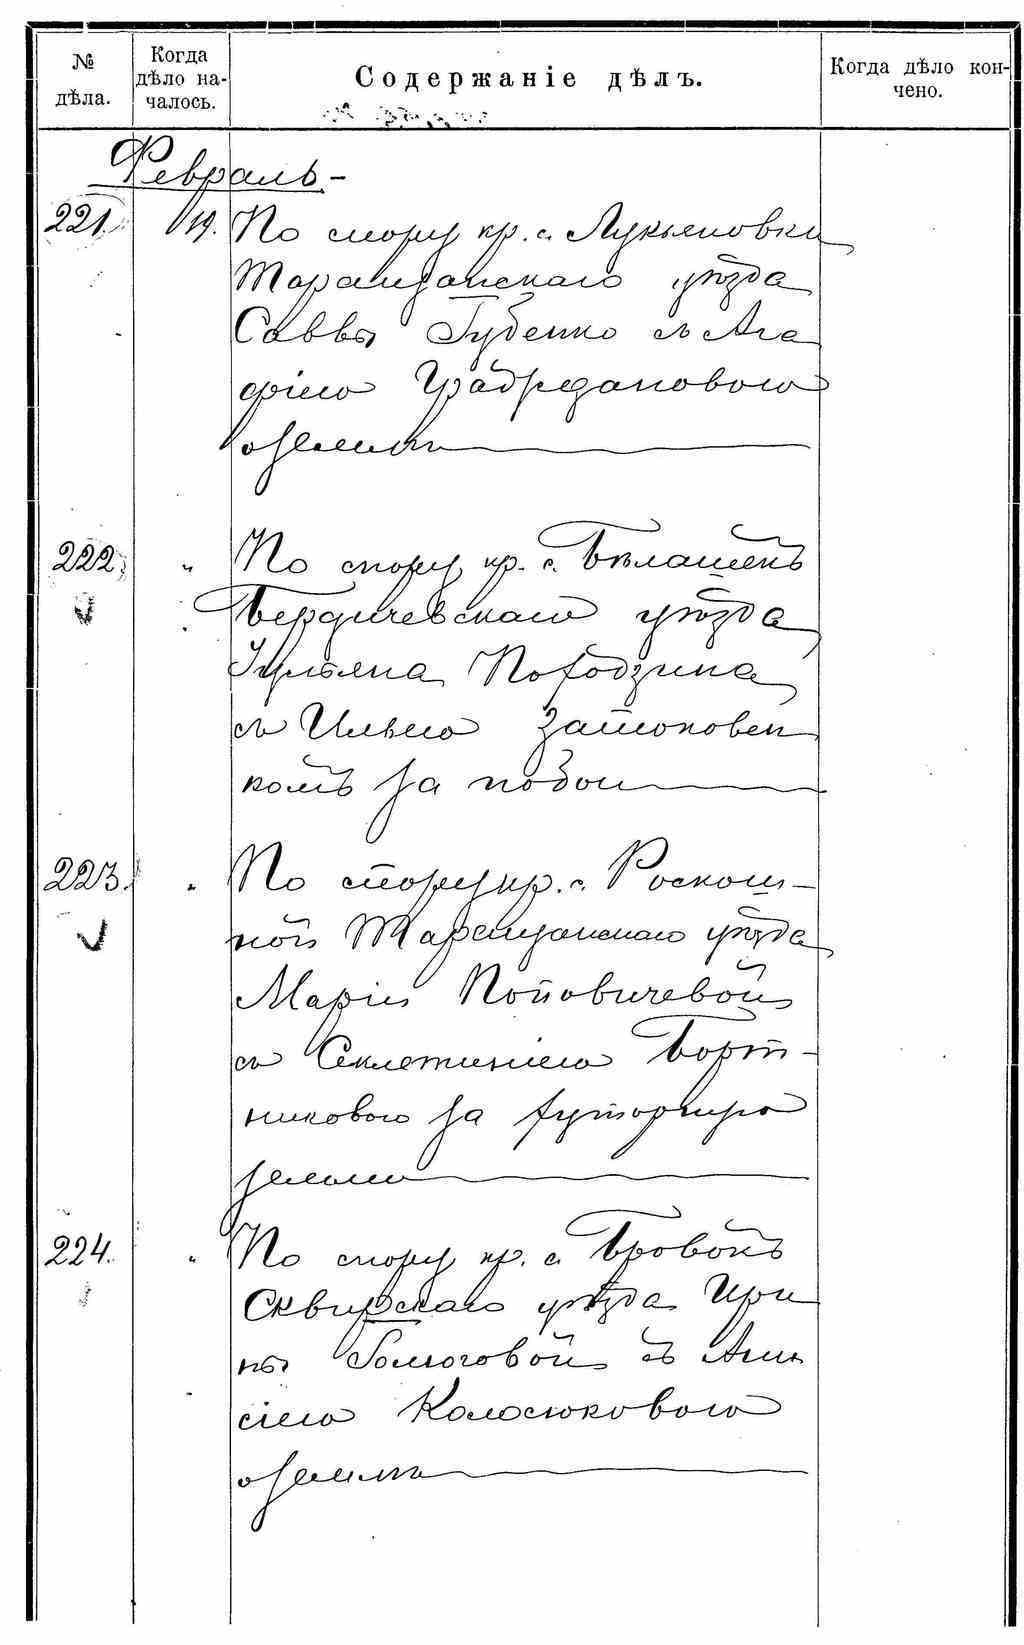 №
дѣла.
Когда
дѣло на-
чалось.
Содержаніе дѣлъ.
Когда дѣло кон-
чено.
Февраль-
221. 19. По спору кр. с. Лукьяновки
Таращанскаго уѣзда
Саввы Губенко съ Ага
фіею
о землѣ
222. " По спору кр. с. Бѣлашекъ
Бердичевскаго уѣзда
Ульяна
съ Ильею
комъ за побои
223. " По спору кр. с. Роскош-
ной Таращанскаго уѣзда
Маріи Поповичевой
съ Секлетиніею Борт-
никовою за
землю
224. " По спору кр. с. Бровокъ
Сквирскаго уѣзда Ири
ны съ Ани
сіею Колосюковою
о землѣ